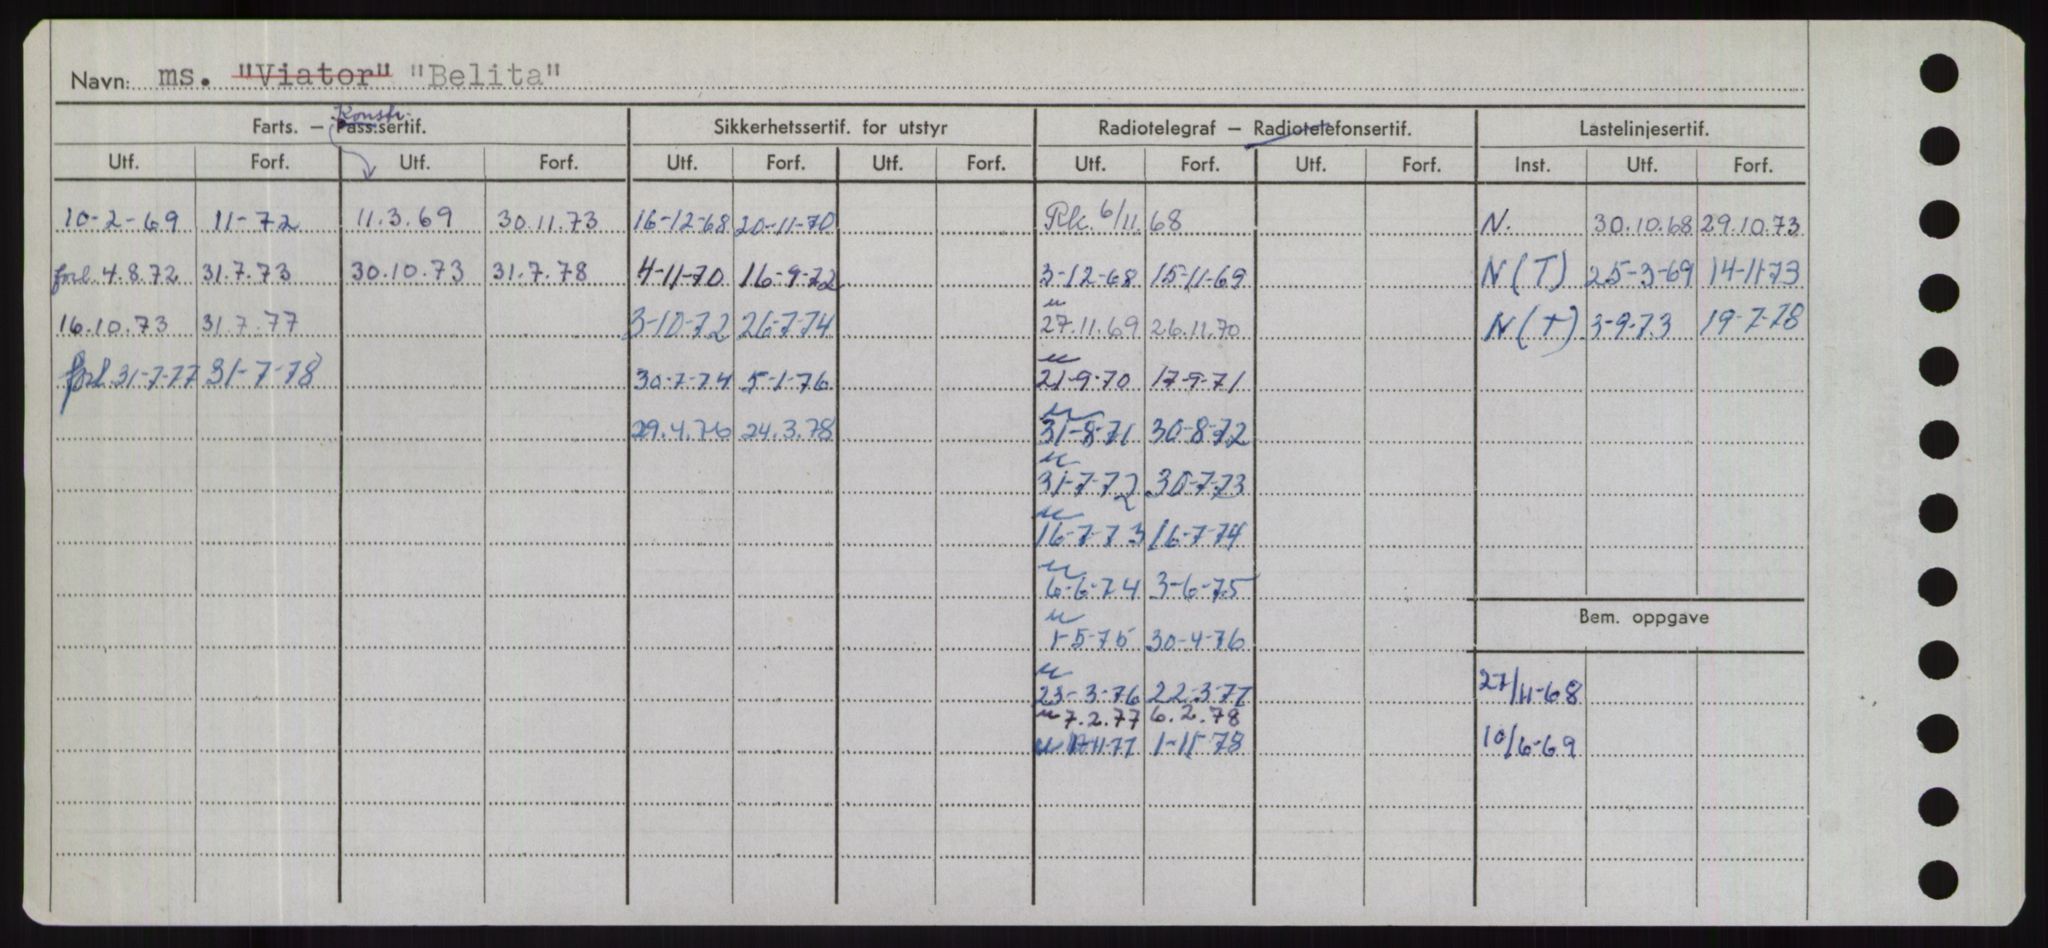 Navn: ms. "Viator" "Belita"
Konstr.
Farts. — Pass.sertif. Sikkerhetssertif. for utstyr Radiotelegraf — Radiotelefonsertif. Lastelinjesertif.
Utf. Forf. Utf. Forf. Utf. Forf. Utf. Forf. Utf. Forf. Utf. Forf. Inst. Utf. Forf.
10-2-69 11-72 11.3.69 30.11.73 16-12-68 20-11-70 Rk. 6/11.68 N. 30.10.68 29.10.73
forl. 4.8.72 31.7.73 30.10.73 31.7.78 4-11-70 16-9-72 3-12-68 15-11-69 N(T) 25-3-69 14-11-73
16.10.73 31.7.77 3-10-72 26-7-74 27.11.69 26.11.70 N(T) 3-9-73 19-7-78
forl. 31-7-77 31-7-78 30-7-74 5-1-76 21-9-70 17-9-71
29.4.76 24.3.78 31-8-71 30-8-72
31-7-72 30-7-73
16-7-73 16-7-74
6-6-74 3-6-75
Bem. oppgave
1-5-75 30-4-76
23-3-76 22-3-77 27/11-68
7.2.77 6.2.78
1-11-78 10/6-69